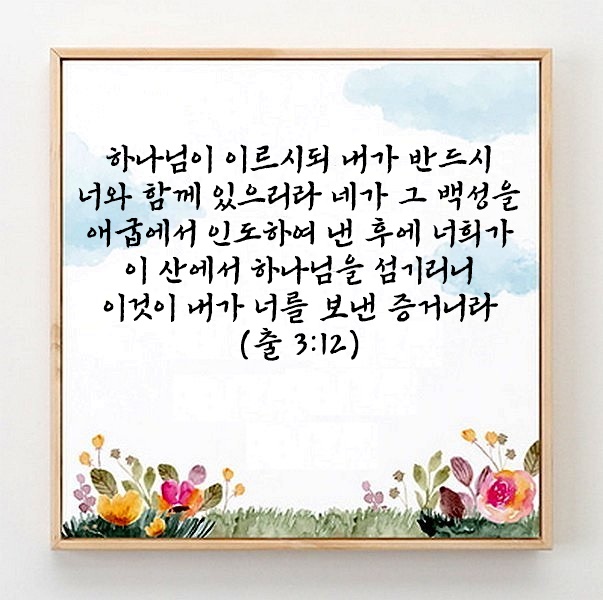 하나님이 이르시되 내가 반드시
너와 함께 있으리라 네가 그 백성을
애굽에서 인도하여 낸 후에 너희가
이 산에서 하나님을 섬기리니
이것이 내가 너를 보낸 증거니라
(출 3:12)